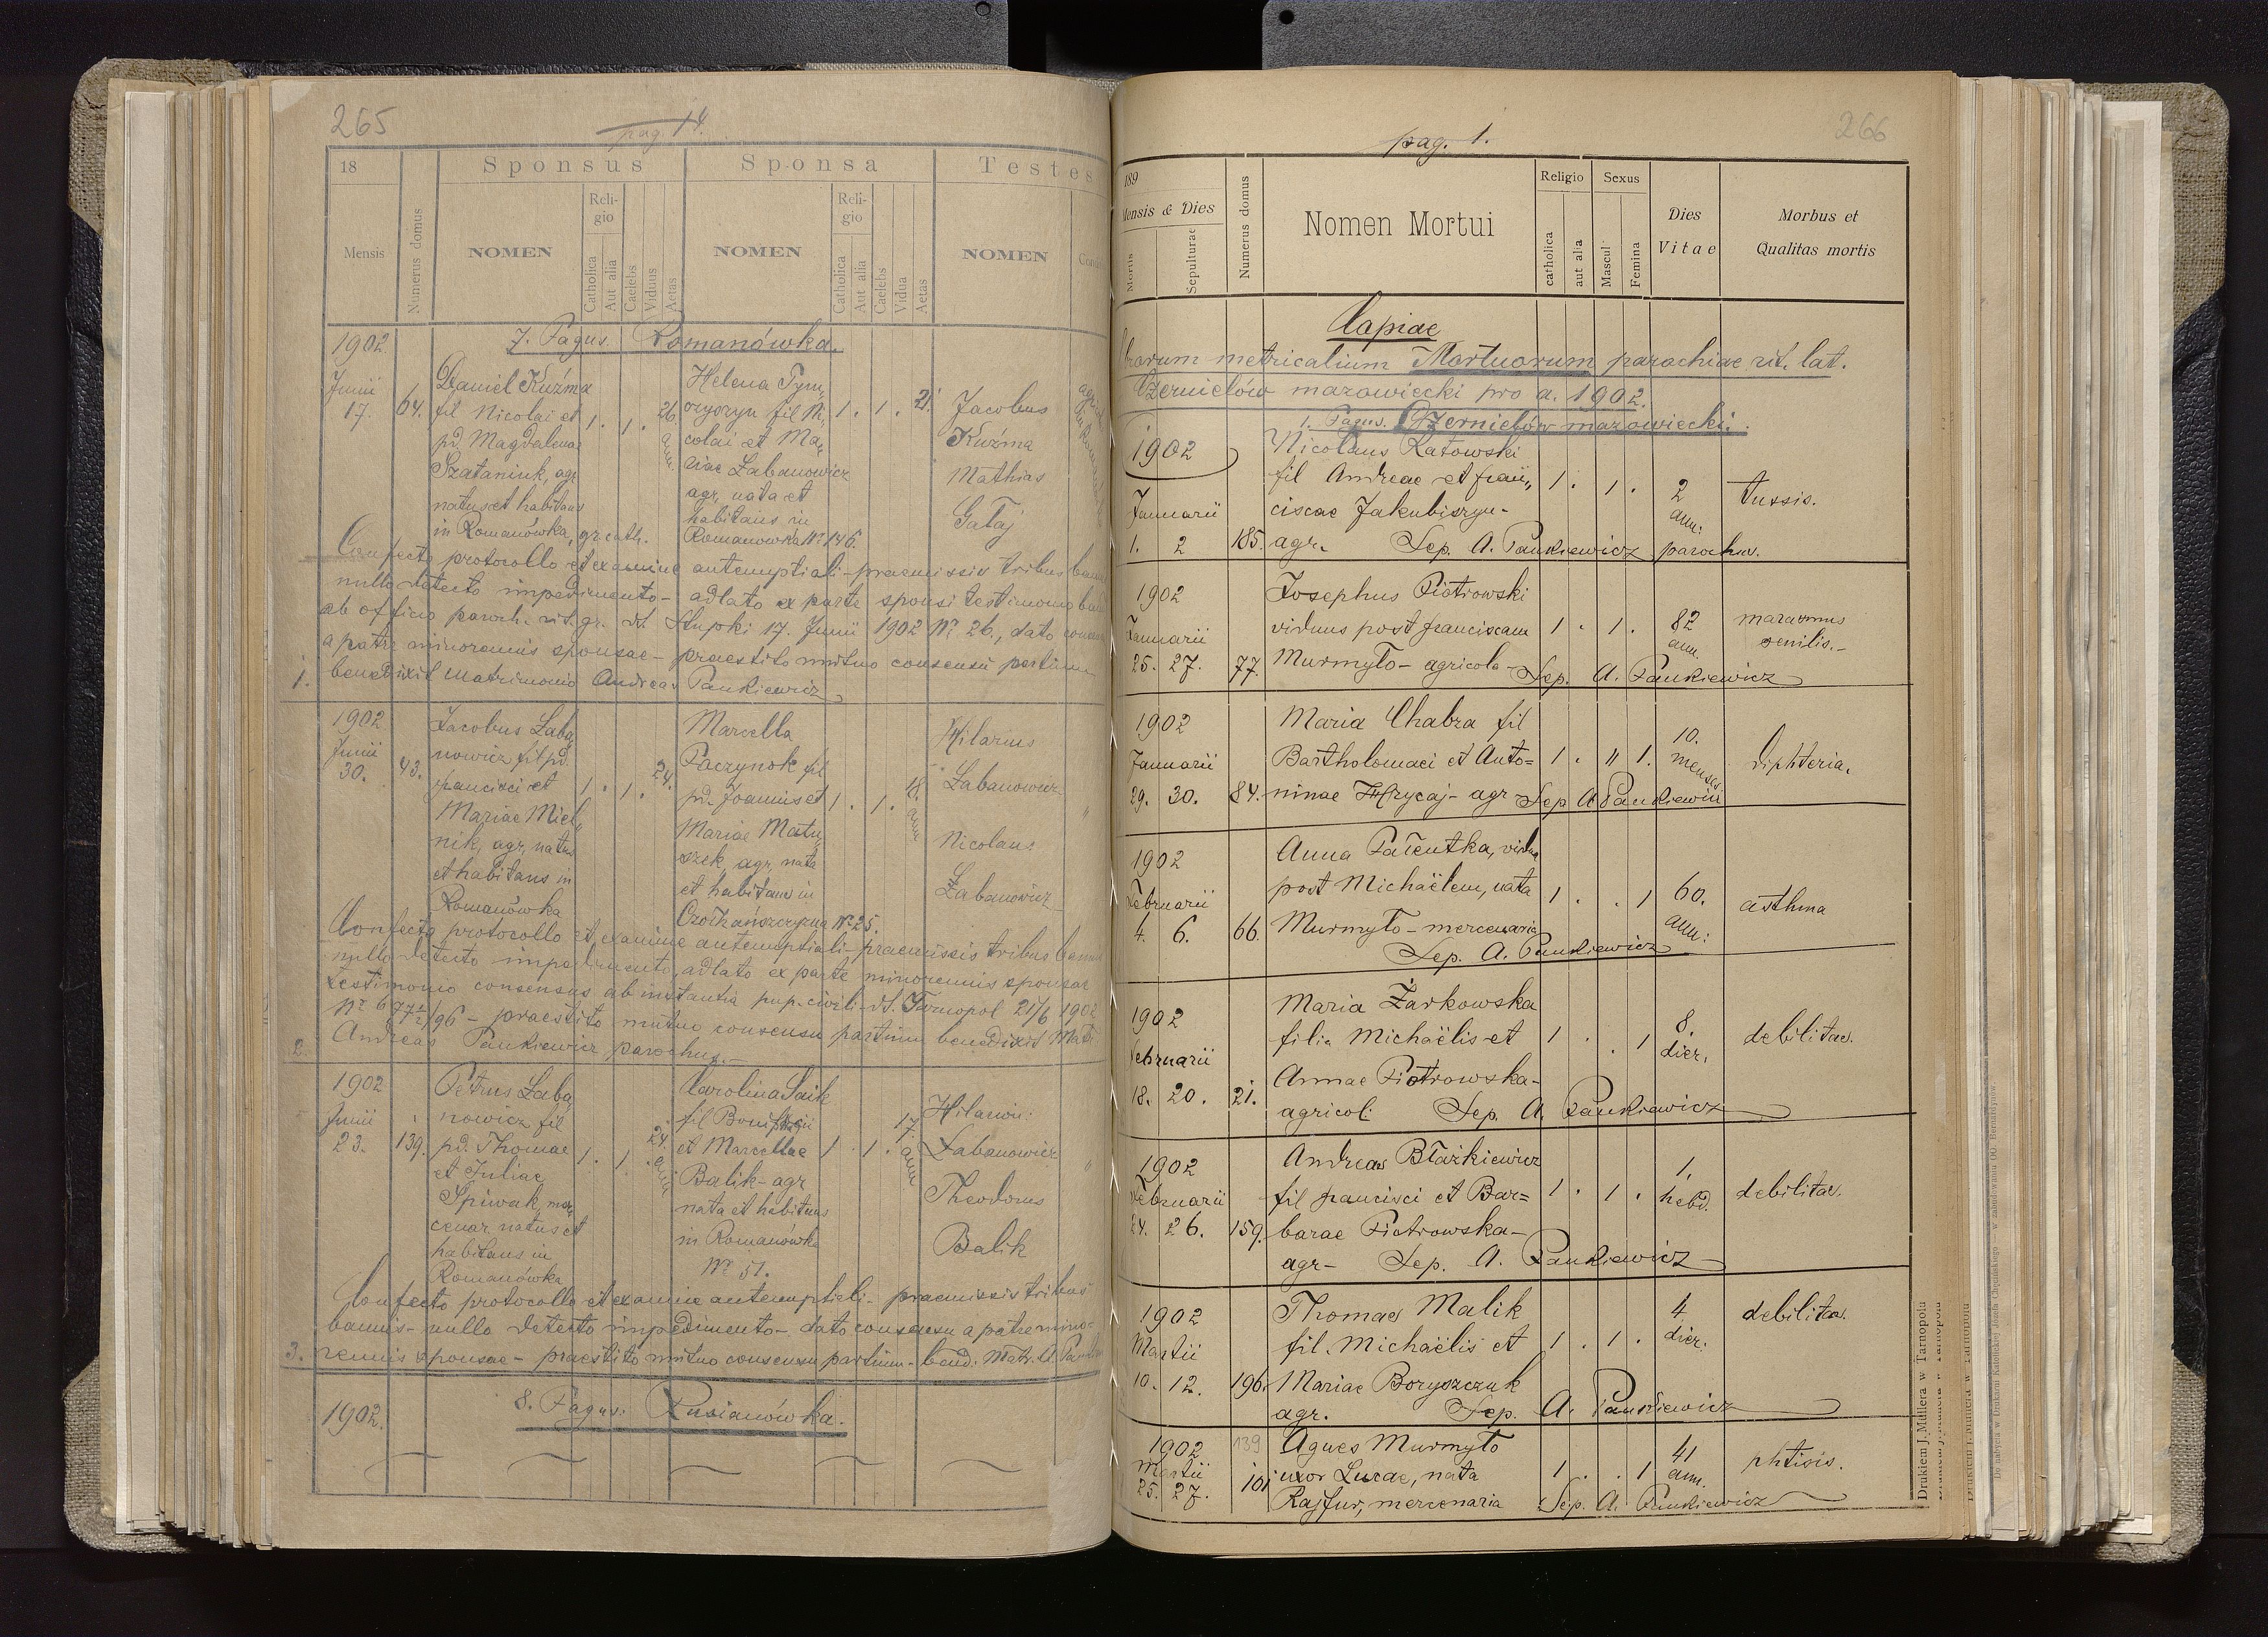 265
pag. 14.
18 Sponsus Sponsa Testes
Mensis
Numerus domus
NOMEN
Reli-
gio
Catholica
Aut alia
Caelebs
Viduus
Aetas
NOMEN
Reli-
gio
Catholica
Aut alia
Caelebs
Vidua
Aetas
NOMEN
1902 7. Pagus. Romanówka.
Junii
17. 64.
Daniel Kuźma
fil Nicolai et
pd. Magdalenae
Szataniuk, agr
natus et habitans
in Romanówka, gr. cath.
1. 1. 26. ann.
Helena Tym,,
colai et Ma,,
riae Łabanowicz
agr, nata et
habitans in
Romanowka Nr 146.
1. 1. 21.
Jacobus
Kuźma
Mathias
Gataj
Confecto protocollo et examine antenuptiali - praemissis tribus
nullo detecto impedimento - adlato ex parte sponsi testimonio
ab officio paroch. rit. gr. dt. Stupki 17. Junii 1902 Nr 26., dato
a patre minorennis sponsae - praestito mutuo consensu partium
1. benedixit Matrimonio Andreas Pankiewicz
1902
Junii
30. 43.
Jacobus Łaba
nowicz fil pd.
francisci et
Mariae Miel,,
nik, agr, natus
et habitans in
Romanówka
1. 1. 24.
Marcella
Paczynok fil
pd. Joannis et
Mariae Matu,,
szek, agr, nata
et habitans in
Nr 25.
1. 1. 18. ann
Hilarius
Łabanowicz
Nicolaus
Łabanowicz
Confecto protocollo et examine antenuptiali - praemissis tribus
nullo detecto impedimento, adlato ex parte minorennis sponsae
testimonio consensus ab instantia pup. civili dt. Tarnopol 21/6 1902
praestito mutuo consensu partium benedixit
2. Andreas Pankiewicz parochus.-
1902
Junii
23. 139.
Petrus Łaba
nowicz fil
pd. Thomae
et Juliae
Spiwak, mer,,
cenar, natus et
habitans in
Romanówka
1. 1. 24. ann
Carolina Saik
fil Bonifacii
et Marcellae
Balik - agr
nata et habitans
in Romanówka
Nr 51.
1. 1. 17. ann
Hilarius
Łabanowicz
Theodorus
Balik
Confecto protocollo et examine antenuptiali - praemissis tribus
bannis - nullo detecto impedimento - dato consensu a patre mino-
3. rennis sponsae - praestito mutuo consensu partium - bened: Matr. A.
1902. 8. Pagus: Rusianówka.
266
pag. 1.
189
Mensis & Dies
Mortis
Sepulturae
Numerus domus
Nomen Mortui
Religio
catholica
aut alia
Sexus
Mascul
Femina
Dies
Vitae
Morbus et
Qualitas mortis
Copiae
metricalium Mortuorum parochiae rit. lat.
Czernielów mazowiecki pro a. 1902.
1. Pagus. Czernielów mazowiecki.
1902 Nicolaus Ratowski
fil Andreae et fran,, 1. 1. 2 ann: tussis.
Januarii ciscae Jakubiszyn-
1. 2 185. agr. Sep. A. Pankiewicz parochus.
1902 Josephus Piotrowski
Januarii viduus post franciscam 1. 1. 82 ann. marasmus senilis.-
25. 27. 77. Murmyło - agricola - Sep. A. Pankiewicz
1902 Maria Chabra fil
Januarii Bartholomaei et Anto= 1. " 1. 10. menses diphteria.
29. 30. 84. ninae Hrycaj - agr - Sep A Pankiewicz
1902 Anna Pałentka, vidua
Februarii post Michaëlem, nata 1. . 1 60. ann: asthma
4. 6. 66. Murmyło - mercenaria
Sep. A. Pankiewicz
1902 Maria Żarkowska
Februarii filia Michaëlis et 1 . . 1 8. dier. debilitas.
Annae Piotrowska-
18. 20. 21. agricol: Sep. A. Pankiewicz
1902 Andreas Błażkiewicz
Februarii fil francisci et Bar= 1. 1. 1. hebd. debilitas.
24. 26. 159. barae Piotrowska-
agr- Sep. A. Pankiewicz
1902 Thomas Malik
Martii fil. Michaëlis et 1. 1. 4 dier: debilitas.
10. 12. 196. Mariae Boryszczuk
agr. Sep. A. Pankiewicz
1902 139 Agnes Murmyło
Martii uxor Lucae, nata 1 . . 1 41 ann. phtisis.
25. 27. 101 Rajfur, mercenaria Sep. A. Pankiewicz
Drukiem J. Mdllera w Tarnopolu